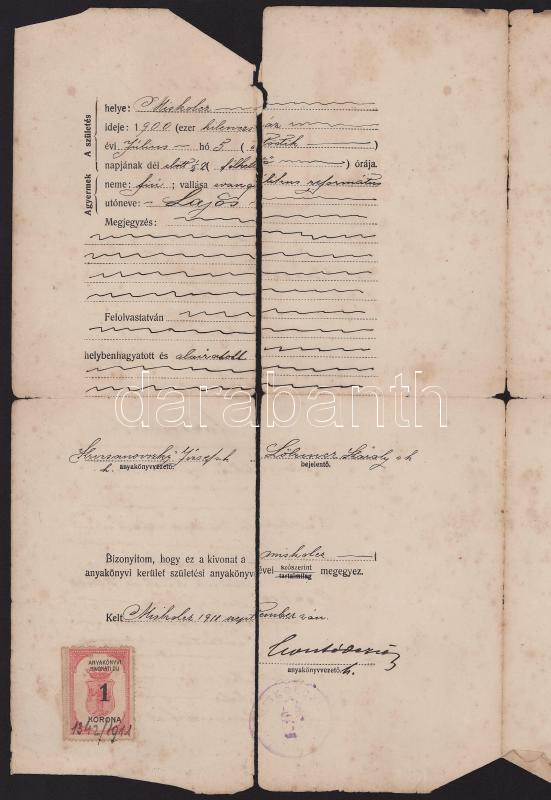 A gyermek
A születés
helye: Miskolcz
ideje: 1900 (ezer kilencszáz
évi Július hó 5 (
napjának dél előtt ) órája.
neme: fiú ; vallása evang. református
utóneve: Lajos
Megjegyzés:
Felolvastatván
helybenhagyatott és aláiratott
darabanth
József
h. anyakönyvvezető.
Károly s.k.
bejelentő.
Bizonyítom, hogy ez a kivonat a miskolcz i
anyakönyvi kerület születési anyakönyvével szószerint tartalmilag megegyez.
Kelt Miskolcz 1911 szeptember
anyakönyvvezető h.
ANYAKÖNYVI
KIVONATI DIJ
1
KORONA
1342/1911